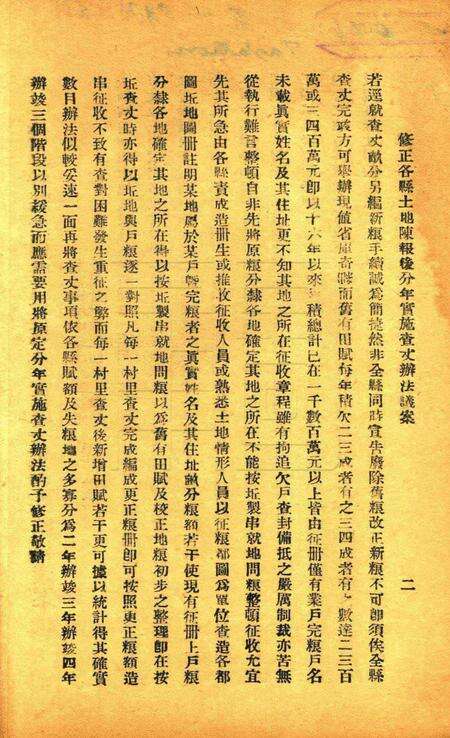 修正各縣土地陳報後分年實施查丈辦法議案
二
若逕就查丈畝分另編新糧手續誠爲簡捷然非全縣同時宣告廢除舊糧改正新糧不可卽須俟全縣
查丈完竣方可舉辦現値省庫奇絀而舊有田賦每年積欠二三成者有之三四成者有 數達二三百
萬或三四百萬元卽以十六年以來 積總計已在一千數百萬元以上皆由征册僅有業戶完糧戶名
未載眞實姓名及其住址更不知其地之所在征收章程雖有拘追欠戶查封備抵之嚴厲制裁亦苦無
從執行難言整頓自非先將原糧分隸各地確定其地之所在不能按坵製串就地問糧整頓征收尤宜
先其所急由各縣責成造册生或推收征收人員或熟悉土地情形人員以征糧都圖爲單位查造各都
圖坵地圖册註明某地屬於某戶 完糧者之眞實姓名及其住址畝分糧額若干使現有征册上戶糧
分隸各地確定其地之所在得以按坵製串就地問糧以爲舊有田賦及校正地糧初步之整理卽在按
坵查丈時亦得以坵地與戶糧逐一對照凡每一村里查丈完成編成更正糧册卽可按照更正糧額造
串征收不致有查對困難發生重征之弊而每一村里查丈後新增田賦若干更可據以統計得其確實
數目辦法似較妥速一面再將查丈事項依各縣賦額及失糧地之多寡分爲二年辦竣三年辦竣四年
辦竣三個階段以別緩急而應需要用將原定分年實施查丈辦法酌予修正敬請